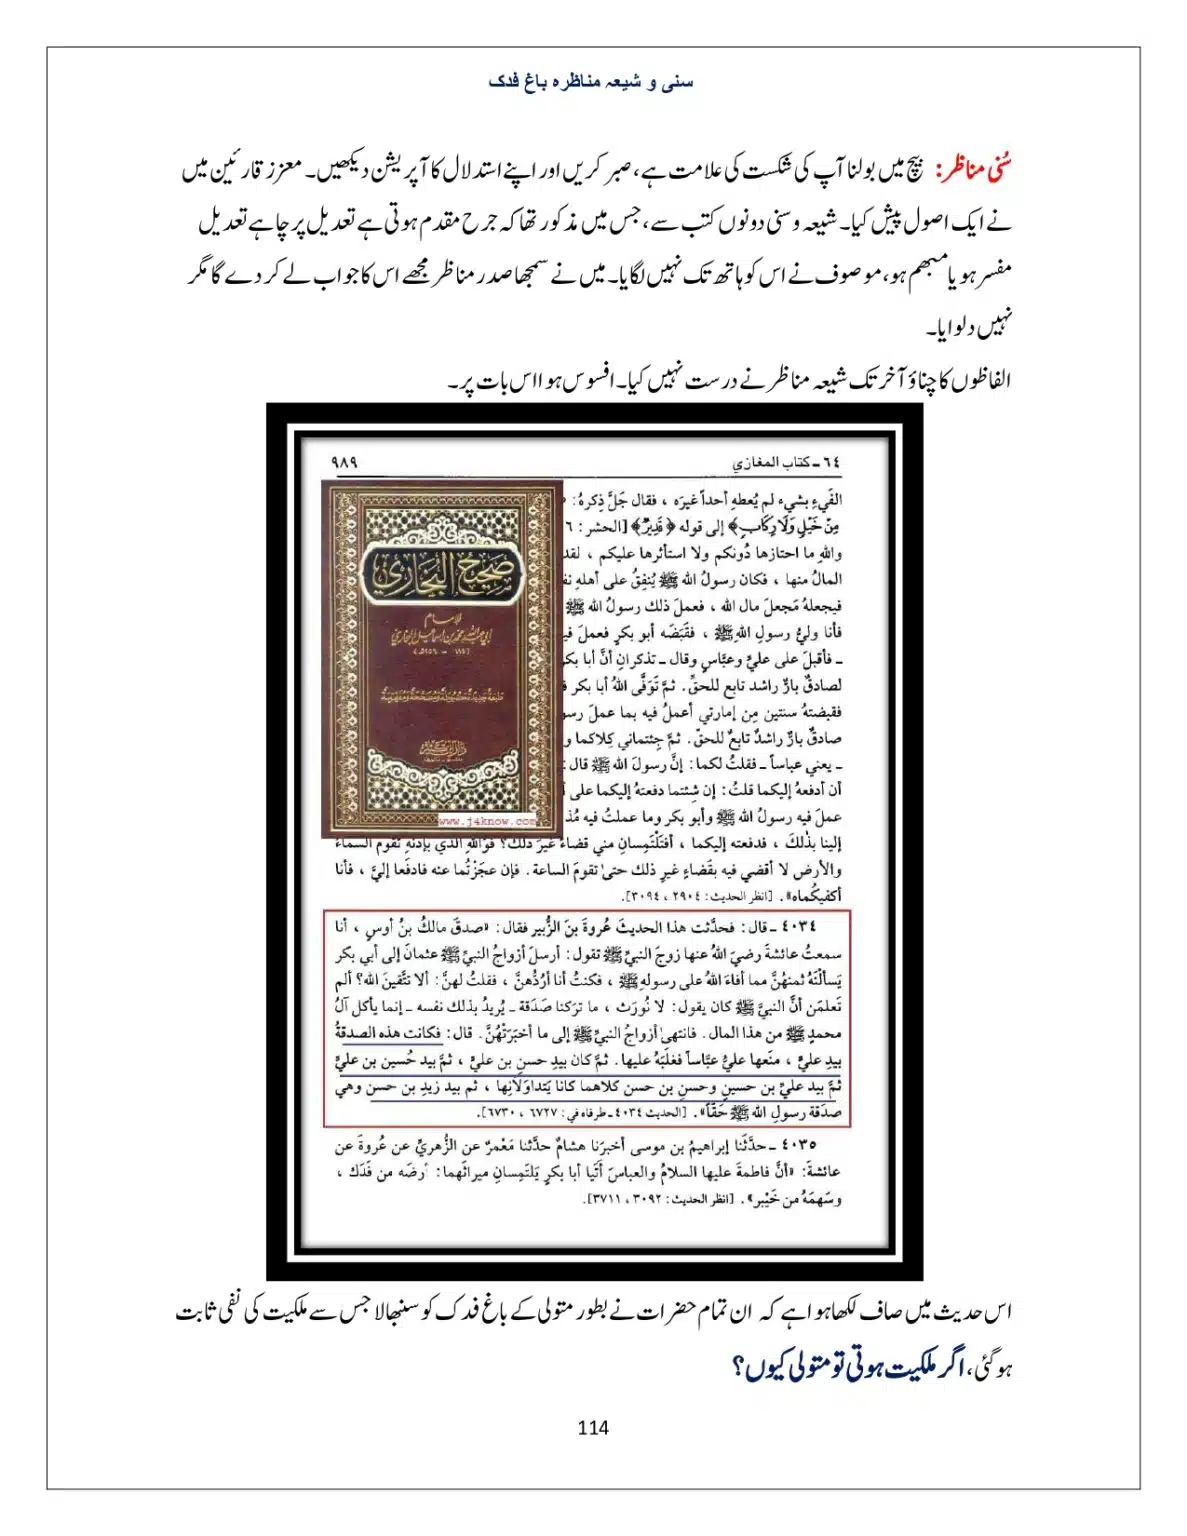 سنی و شیعہ مناظرہ باغ فدک
سُنی مناظر: بیچ میں بولنا آپ کی شکست کی علامت ہے، صبر کریں اور اپنے استدلال کا آپریشن دیکھیں۔ معزز قارئین میں
نے ایک اصول پیش کیا۔ شیعہ و سنی دونوں کتب سے، جس میں مذکور تھا کہ جرح مقدم ہوتی ہے تعدیل پر چاہے تعدیل
مفسر ہو یا مبھم ہو، موصوف نے اس کو ہاتھ تک نہیں لگایا۔ میں نے سمجھا صدر مناظر مجھے اس کا جواب لے کر دے گا مگر
نہیں دلوایا۔
الفاظوں کا چناؤ آخر تک شیعہ مناظر نے درست نہیں کیا۔ افسوس ہوا اس بات پر۔
٦٤ ـ كتاب المغازي ٩٨٩
الفَيءِ بشيء لم يُعطهِ أحداً غيرَه ، فقال جَلَّ ذِكرهُ :
مِنْ خَيْلٍ وَلَا رِكَابٍ﴾ إلى قوله ﴿ قَدِيرٌ﴾ [الحشر : ٦
واللهِ ما احتازها دُونكم ولا استأثرها عليكم ، لقد
المالُ منها ، فكان رسولُ الله ﷺ يُنفِقُ على أهلهِ
فيجعلهُ مَجعلَ مال الله ، فعملَ ذلك رسولُ الله ﷺ
فأنا وليُّ رسولِ اللهِ ﷺ ، فقَبَضَه أبو بكرٍ فعملَ
ـ فأقبلَ على عليٍّ وعبَّاسٍ وقال ـ تذكرانِ أنَّ أبا
لصادقٌ بارٌّ راشد تابع للحقِّ . ثمَّ تَوَفَّى اللهُ أبا بكر
فقبضتهُ سنتين مِن إمارتي أعملُ فيه بما عملَ
صادقٌ بارٌّ راشدٌ تابعٌ للحقّ . ثمَّ جِئتماني كِلاكما
ـ يعني عباساً ـ فقلتُ لكما : إنَّ رسولَ الله ﷺ قال :
أن أدفعهُ إليكما قلتُ : إن شِئتما دفعتهُ إليكما على
عملَ فيه رسولُ الله ﷺ وأبو بكر وما عملتُ فيه
إلينا بذٰلكَ ، فدفعته إليكما ، أفتَلْتَمِسانِ مني قضاءً غيرَ ذلك؟ فوَاللهِ الذي بإذنهِ تقومُ السماءُ
والأرض لا أقضي فيه بقَضاءٍ غيرِ ذلك حتى تقومَ الساعة . فإن عجَزْتُما عنه فادفَعا إليَّ ، فأنا
أكفيكُماه» . [انظر الحديث : ٢٩٠٤ ، ٣٠٩٤].
٤٠٣٤ ـ قال : فحدَّثت هذا الحديثَ عُروةَ بنَ الزُّبير فقال : «صدقَ مالكُ بنُ أوسٍ ، أنا
سمعتُ عائشةَ رضيَ اللهُ عنها زوجَ النبيِّ ﷺ تقول : أرسلَ أزواجُ النبيِّ ﷺ عثمانَ إلى أبي بكر
يَسألْنَهُ ثمنهُنَّ مما أفاءَ اللهُ على رسولهِ ﷺ ، فكنتُ أنا أرُدُّهنَّ ، فقلتُ لهنَّ : ألا تتَّقينَ الله؟ ألم
تَعلمَن أنَّ النبيَّ ﷺ كان يقول : لا نُورَث ، ما تركنا صَدَقة ـ يُريدُ بذلك نفسه ـ إنما يأكل آلُ
محمدٍ ﷺ من هذا المال . فانتهى أزواجُ النبيِّ ﷺ إلى ما أخبَرَتْهُنَّ . قال : فكانت هذه الصدقةُ
بيدِ عليٍّ ، منَعها عليُّ عبَّاساً فغلَبَهُ عليها . ثمَّ كان بيدِ حسنِ بن عليٍّ ، ثمَّ بيد حُسين بن عليٍّ
ثمَّ بيد عليِّ بن حسينٍ وحسنِ بن حسن كلاهما كانا يَتداوَلانِها ، ثم بيد زيدِ بن حسن وهي
صدَقة رسولِ الله ﷺ حَقّاً» . [الحديث ٤٠٣٤ ـ طرفاه في : ٦٧٢٧ ، ٦٧٣٠].
٤٠٣٥ ـ حدَّثنا إبراهيمُ بن موسى أخبرَنا هشامٌ حدَّثنا مَعْمرٌ عن الزُّهريِّ عن عُروةَ عن
عائشةَ : «أنَّ فاطمةَ عليها السلامُ والعباسَ أتَيا أبا بكرٍ يَلتَمِسانِ ميراثَهما : أرضَه من فَدَك ،
وسَهمَهُ من خَيْبر» . [انظر الحديث : ٣٠٩٢ ، ٣٧١١].
صَحِيحُ البُخَارِي
للإمام
أبي عبد الله محمد بن إسماعيل البخاري
www.j4know.com
اس حدیث میں صاف لکھا ہوا ہے کہ ان تمام حضرات نے بطور متولی کے باغ فدک کو سنبھالا جس سے ملکیت کی نفی ثابت
ہو گئی، اگر ملکیت ہوتی تو متولی کیوں؟
114